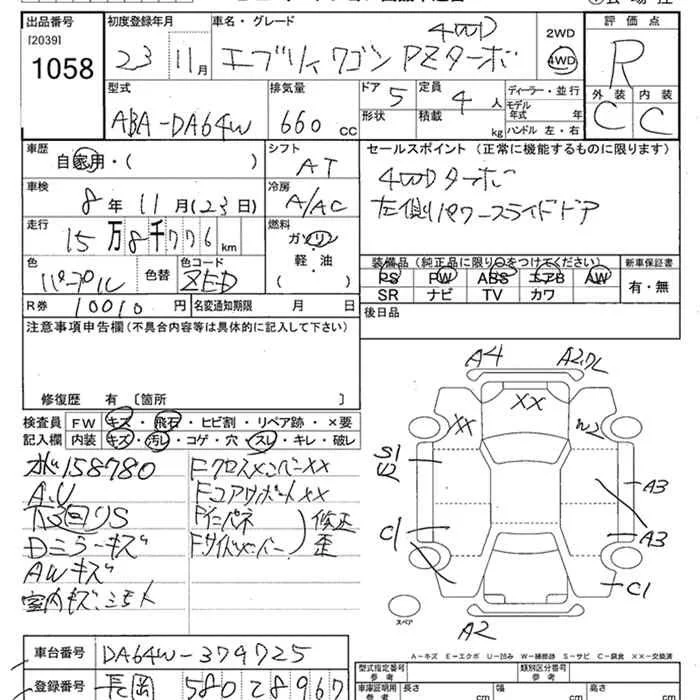 出品番号 初度登録年月 車名・グレード 評価点
[2039]
1058
23 11月 エブリィワゴン PZターボ 4WD
2WD
4WD
R
外装 内装
C C
型式 排気量 ドア 定員 ディーラー・並行
ABA-DA64W 660cc 5 4人
形状 積載 kg
モデル年式 年
ハンドル 左・右
車歴 シフト セールスポイント(正常に機能するものに限ります)
自家用・( ) AT
4WDターボ
左側パワースライドドア
車検 冷房
8年11月(23日) A/AC
走行 燃料
15万8千776km ガソリン
軽・油
( )
色 色替 色コード
パープル ZED
装備品(純正品に限り○をつけてください) 新車保証書
PS PW ABS エアB AW
SR ナビ TV カワ
有・無
R券 10010円 名変通知期限 月 日
後日品
注意事項申告欄(不具合内容等は具体的に記入して下さい)
修復歴 有 〔箇所 〕
検査員 FW キズ・飛石・ヒビ割・リペア跡・×要
記入欄 内装 キズ・汚れ・コゲ・穴・スレ・キレ・破レ
158780 FクロスメンバーXX
A.U FコアサポートXX
Dミラーキズ
AWキズ
修正
歪
室内キズ、シミ大
A4 A2
XX
XX
S1
U2
A3
A3
C1
C1
A2
スペア
A-キズ E-エクボ U-凹み W-補修跡 S-サビ C-腐食 XX-交換済
車台番号 DA64W-379725
登録番号 長岡 580 28967
型式指定番号 参考
類別区分番号 参考
車庫証明用 参考
長さ cm
幅 cm
高さ cm